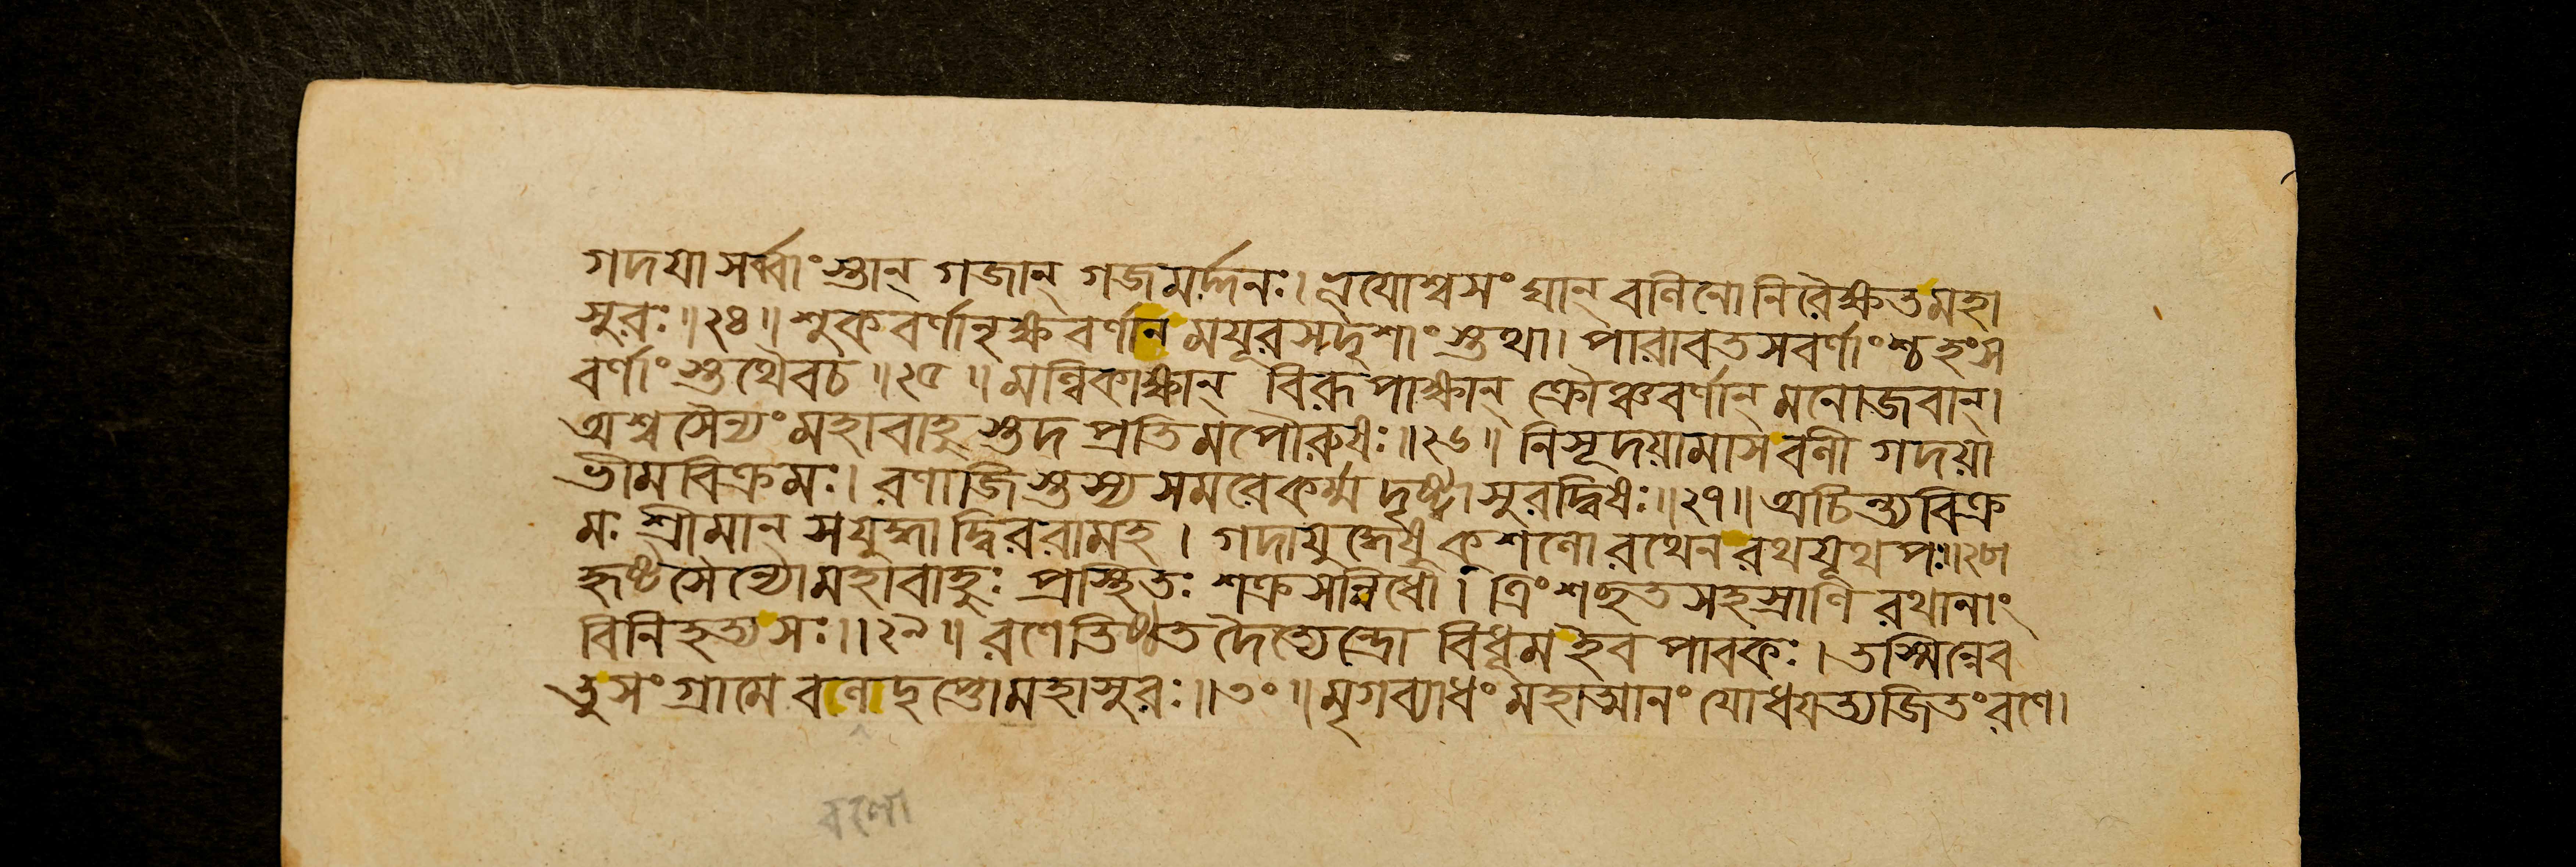 গদযা সর্ব্বাংস্তান্ গজান্ গজমর্দ্দনঃ। পুযোশ্বসংঘান্ বলিনো নিরৈক্ষত মহা
সুরঃ॥২৪॥ শুকবর্ণানৃক্ষবর্ণান ময়ূরসদৃশাংস্তথা। পারাবতসবর্ণাংশ্চ হংস
বর্ণাংস্তথৈবচ॥২৫॥ মল্লিকাক্ষান্ বিরূপাক্ষান্ ক্রৌঞ্চবর্ণান্ মনোজবান্।
অশ্বসৈন্যং মহাবাহুস্তদপ্রতিমপৌরুষঃ॥২৬॥ নিসূদয়ামাস বলী গদয়া
ভীমবিক্রমঃ। রণাজিস্তস্য সমরে কর্ম্ম দৃষ্ট্বাসুরদ্বিষঃ॥২৭॥ অচিন্ত্যবিক্র
মঃ শ্রীমান্ সযুদ্ধাদ্বিররামহ। গদাযুদ্ধেষু কুশলো রথেন রথযূথপঃ॥২৮॥
হৃষ্টসৈন্যো মহাবাহুঃ প্রস্থিতঃ শক্রসন্নিধৌ। ত্রিংশচ্ছতসহস্রাণি রথানাং
বিনিহত্য সঃ॥২৯॥ রণেতিষ্ঠত দৈত্যেন্দ্রো বিধূমইব পাবকঃ। তস্মিন্নেব
তু সংগ্রামে বলোদৃপ্তো মহাসুরঃ॥৩০॥ মৃগব্যাধং মহাত্মানং যোধযত্যজিতং রণে।
বলো